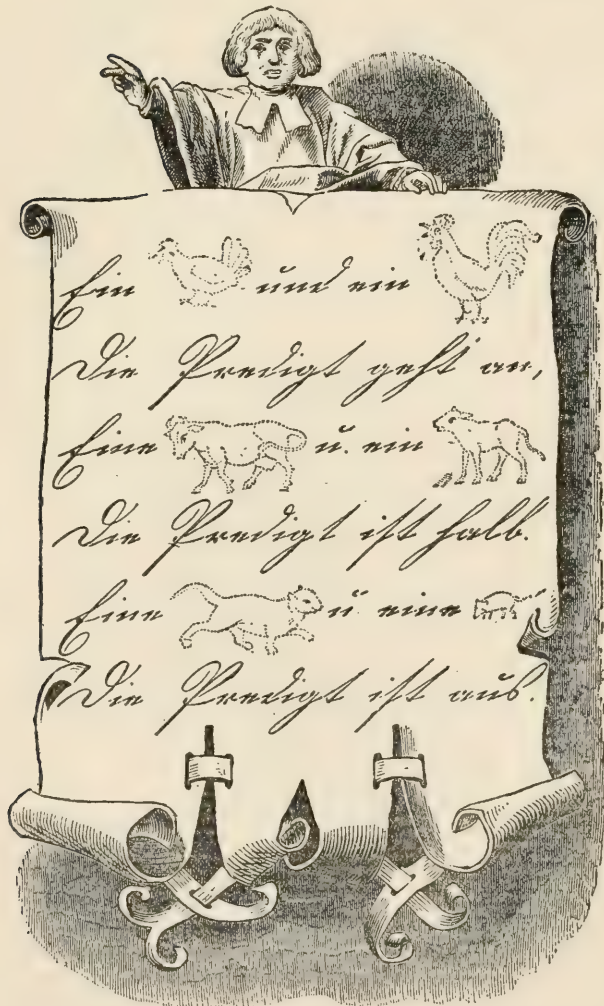 Ein und ein
Die Predigt geht an,
Eine u. ein
Die Predigt ist halb.
Eine u eine
Die Predigt ist aus.